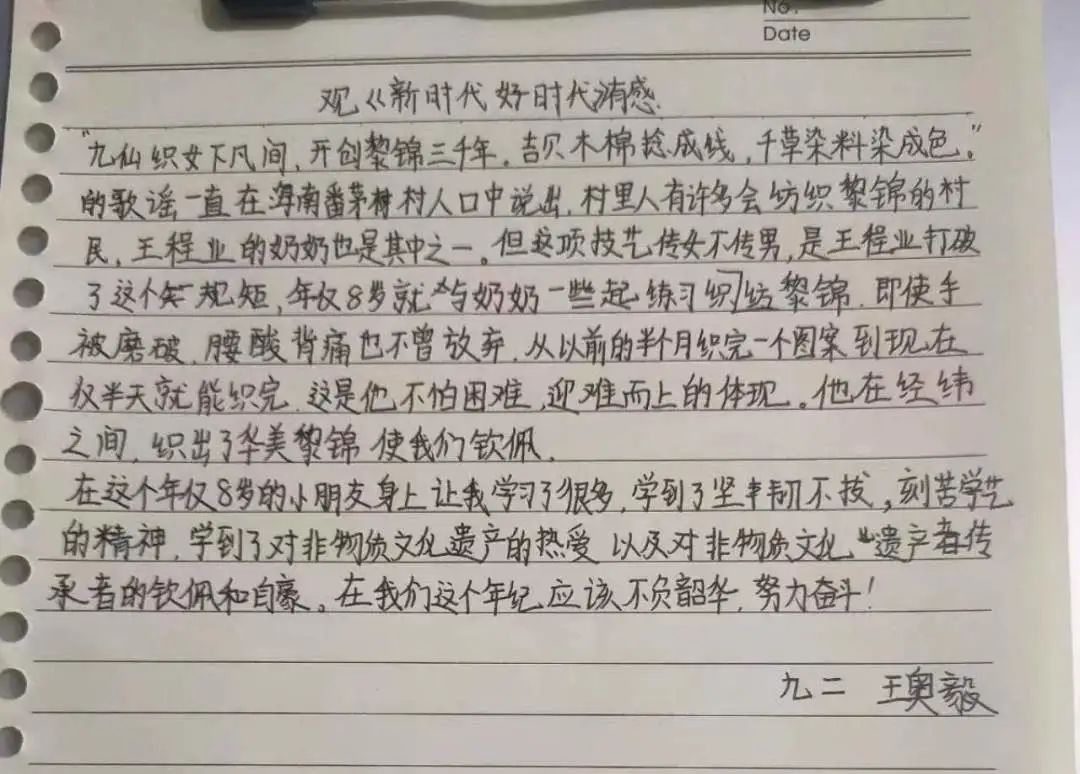 No.
Date
观《新时代好时代》有感
"九仙织女下凡间,开创黎锦三千年。吉贝木棉捻成线,千草染料染成色。"
的歌谣一直在海南番茅村村人口中说出,村里人有许多会纺织黎锦的村
民,王程业的奶奶也是其中之一。但这项技艺传女不传男,是王程业打破
了这个规矩,年仅8岁就与奶奶一起练习织纺黎锦,即使手
被磨破,腰酸背痛也不曾放弃,从以前的半个月织完一个图案到现在
仅半天就能织完,这是他不怕困难,迎难而上的体现。他在经纬
之间,织出了华美黎锦使我们钦佩,
在这个年仅8岁的小朋友身上让我学习了很多,学到了坚韧不拔,刻苦学艺
的精神,学到了对非物质文化遗产的热爱以及对非物质文化遗产传
承者的钦佩和自豪。在我们这个年纪应该不负韶华,努力奋斗!
九二 王奥毅